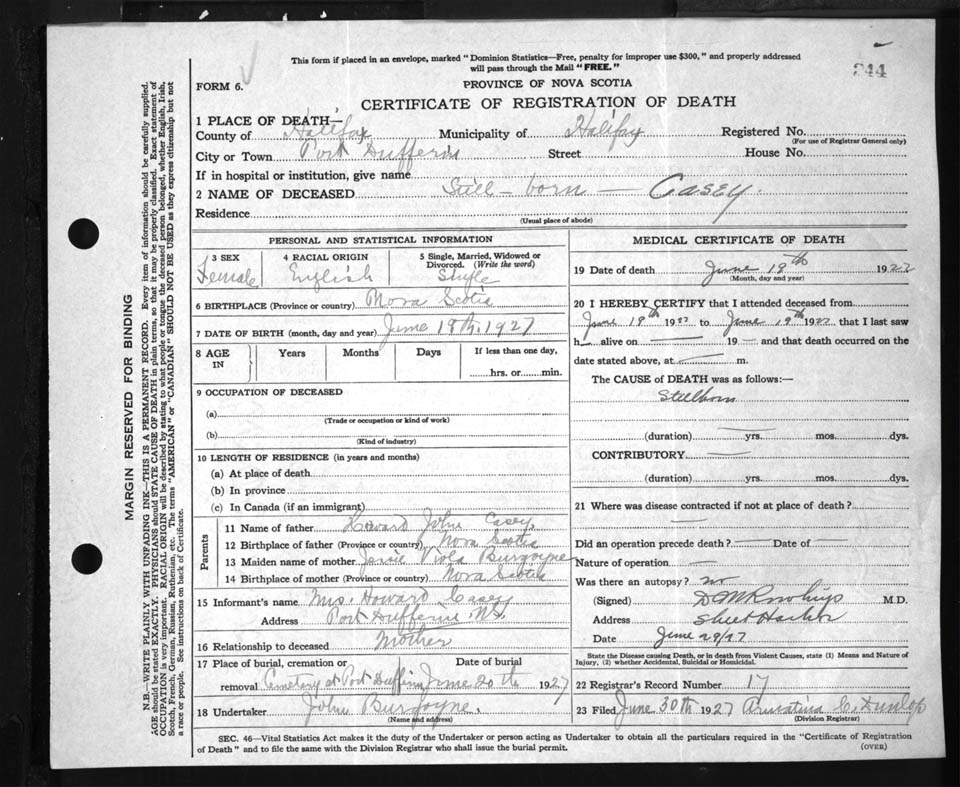 This form if placed in an envelope, marked "Dominion Statistics—Free, penalty for improper use $300," and properly addressed
will pass through the Mail "FREE."
244
FORM 6.
PROVINCE OF NOVA SCOTIA
CERTIFICATE OF REGISTRATION OF DEATH
1 PLACE OF DEATH—
County of Halifax Municipality of Halifax Registered No.
(For use of Registrar General only)
City or Town Port Dufferin Street House No.
If in hospital or institution, give name
2 NAME OF DECEASED Still-born — Casey.
Residence
(Usual place of abode)
PERSONAL AND STATISTICAL INFORMATION
3 SEX 4 RACIAL ORIGIN 5 Single, Married, Widowed or
Divorced. (Write the word)
Female English Single
6 BIRTHPLACE (Province or country) Nova Scotia
7 DATE OF BIRTH (month, day and year) June 19th, 1927
8 AGE IN Years Months Days If less than one day,
hrs. or min.
9 OCCUPATION OF DECEASED
(a)
(Trade or occupation or kind of work)
(b)
(Kind of industry)
10 LENGTH OF RESIDENCE (in years and months)
(a) At place of death
(b) In province
(c) In Canada (if an immigrant)
Parents
11 Name of father Howard John Casey
12 Birthplace of father (Province or country) Nova Scotia
13 Maiden name of mother Viola Burgoyne
14 Birthplace of mother (Province or country) Nova Scotia
15 Informant's name Mrs. Howard Casey
Address Port Dufferin N.S.
16 Relationship to deceased Mother
17 Place of burial, cremation or Date of burial
removal Cemetery at Port Dufferin June 20th 1927
18 Undertaker John Burgoyne.
(Name and address)
MEDICAL CERTIFICATE OF DEATH
19 Date of death June 19th 1927
(Month, day and year)
20 I HEREBY CERTIFY that I attended deceased from
June 19th 1927 to June 19th 1927 that I last saw
h— alive on — 19 — and that death occurred on the
date stated above, at — m.
The CAUSE of DEATH was as follows:—
Stillborn
(duration) yrs. mos. dys.
CONTRIBUTORY —
(duration) yrs. mos. dys.
21 Where was disease contracted if not at place of death?
—
Did an operation precede death? — Date of —
Nature of operation —
Was there an autopsy? no
(Signed) M.D.
Address Sheet Harbor
Date June 29/27
State the Disease causing Death, or in death from Violent Causes, state (1) Means and Nature of
Injury, (2) whether Accidental, Suicidal or Homicidal.
22 Registrar's Record Number 17
23 Filed June 30th 1927 C. Dunlop
(Division Registrar)
SEC. 46—Vital Statistics Act makes it the duty of the Undertaker or person acting as Undertaker to obtain all the particulars required in the "Certificate of Registration
of Death" and to file the same with the Division Registrar who shall issue the burial permit.
(OVER)
MARGIN RESERVED FOR BINDING
N.B.—WRITE PLAINLY WITH UNFADING INK—THIS IS A PERMANENT RECORD. Every item of information should be carefully supplied.
AGE should be stated EXACTLY. PHYSICIANS should STATE CAUSE OF DEATH in plain terms, so that it may be properly classified. Exact statement of
OCCUPATION is very important. RACIAL ORIGIN will be described by stating to what people or tongue the deceased person belonged, whether English, Irish,
Scotch, French, German, Russian, Ruthenian, etc. The terms "AMERICAN" or "CANADIAN" SHOULD NOT BE USED as they express citizenship but not
a race or people. See instructions on back of Certificate.